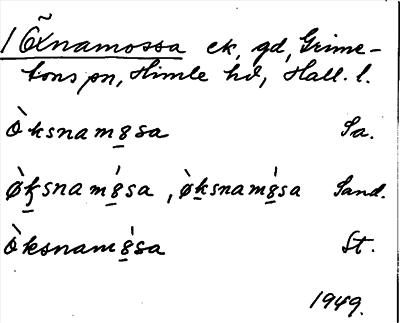 1 Öxnamossa ek, gd, Grime-
tons sn, Himle hd, Hall. l.
ò̀ksnamo̲sa Sa.
ø̀ḵsnamó̲sa, ø̀ḵsnamó̲sa Sand.
òksnamó̲sa St.
1949.